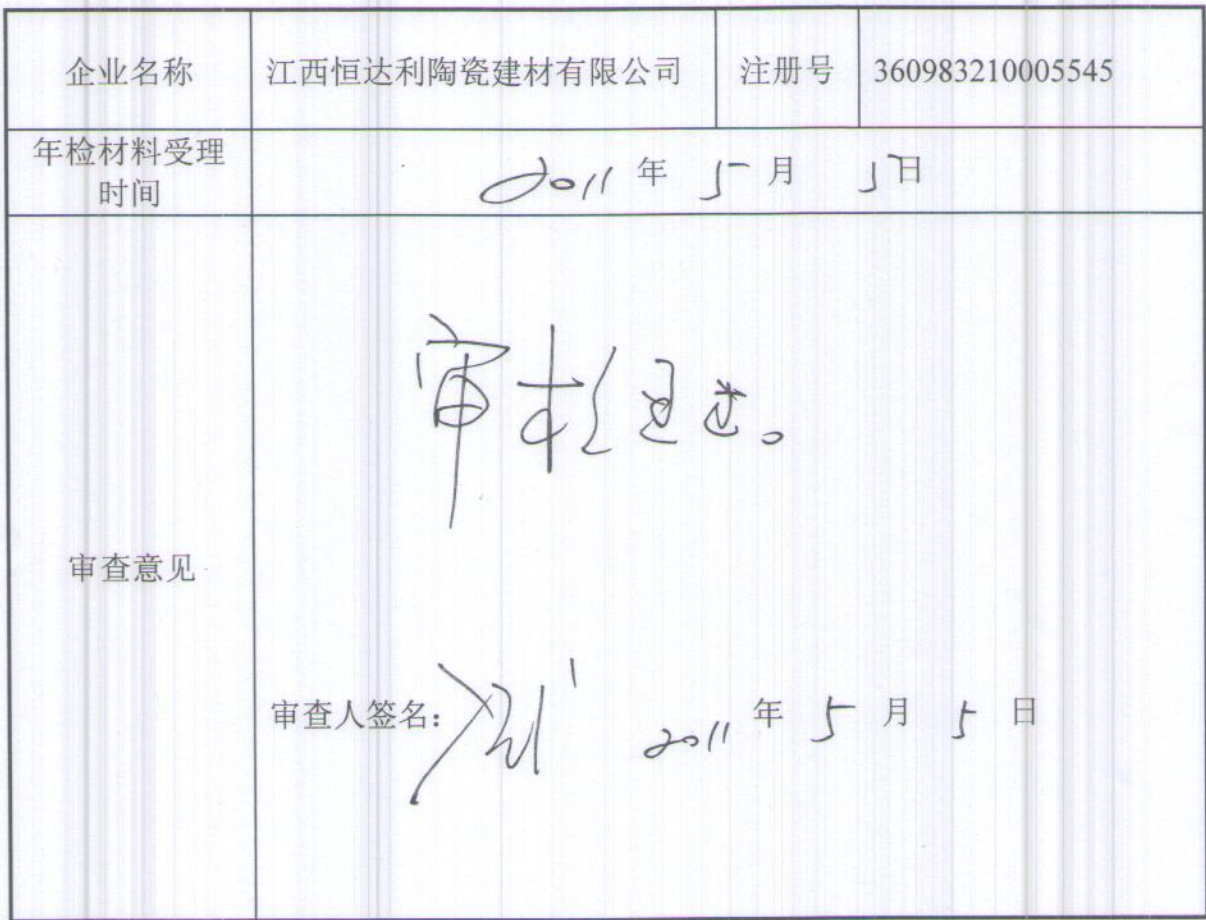 企业名称 江西恒达利陶瓷建材有限公司 注册号 360983210005545
年检材料受理
时间
2011 年 5 月 5 日
审核通过。
审查意见
审查人签名: 2011 年 5 月 5 日